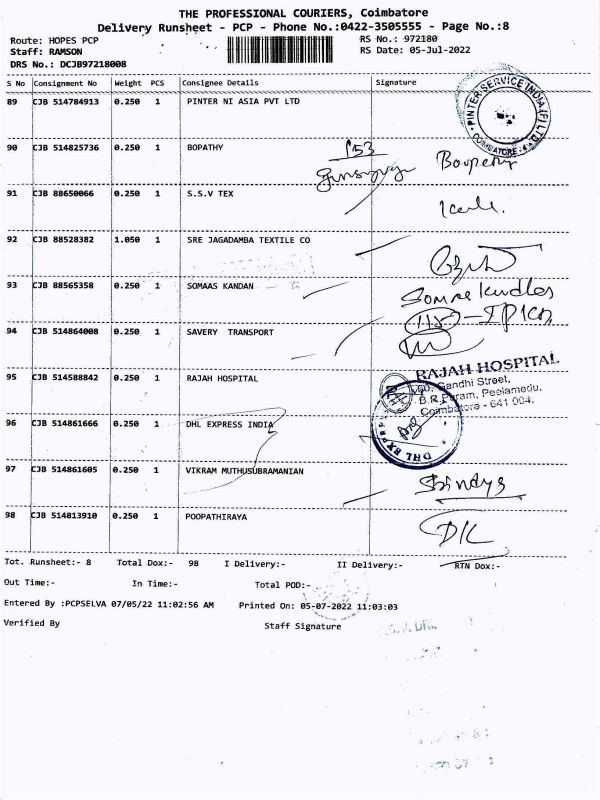 THE PROFESSIONAL COURIERS, Coimbatore
Delivery Runsheet - PCP - Phone No.:0422-3505555 - Page No.:8
Route: HOPES PCP RS No.: 972180
Staff: RAMSON RS Date: 05-Jul-2022
DRS No.: DCJB97218008
S No Consignment No Weight PCS Consignee Details Signature
89 CJB 514784913 0.250 1 PINTER NI ASIA PVT LTD
PINTER SERVICE INDIA (P) LTD
COIMBATORE-4
90 CJB 514825736 0.250 1 BOPATHY
153
91 CJB 88650066 0.250 1 S.S.V TEX
92 CJB 88528382 1.050 1 SRE JAGADAMBA TEXTILE CO
93 CJB 88565358 0.250 1 SOMAAS KANDAN
94 CJB 514864008 0.250 1 SAVERY TRANSPORT
95 CJB 514588842 0.250 1 RAJAH HOSPITAL
RAJAH HOSPITAL
Gandhi Street,
B.R.Puram, Peelamedu,
Coimbatore - 641 004.
96 CJB 514861666 0.250 1 DHL EXPRESS INDIA
DHL EXPRESS
97 CJB 514861605 0.250 1 VIKRAM MUTHUSUBRAMANIAN
98 CJB 514813910 0.250 1 POOPATHIRAYA
Tot. Runsheet:- 8 Total Dox:- 98 I Delivery:- II Delivery:- RTN Dox:-
Out Time:- In Time:- Total POD:-
Entered By :PCPSELVA 07/05/22 11:02:56 AM Printed On: 05-07-2022 11:03:03
Verified By Staff Signature